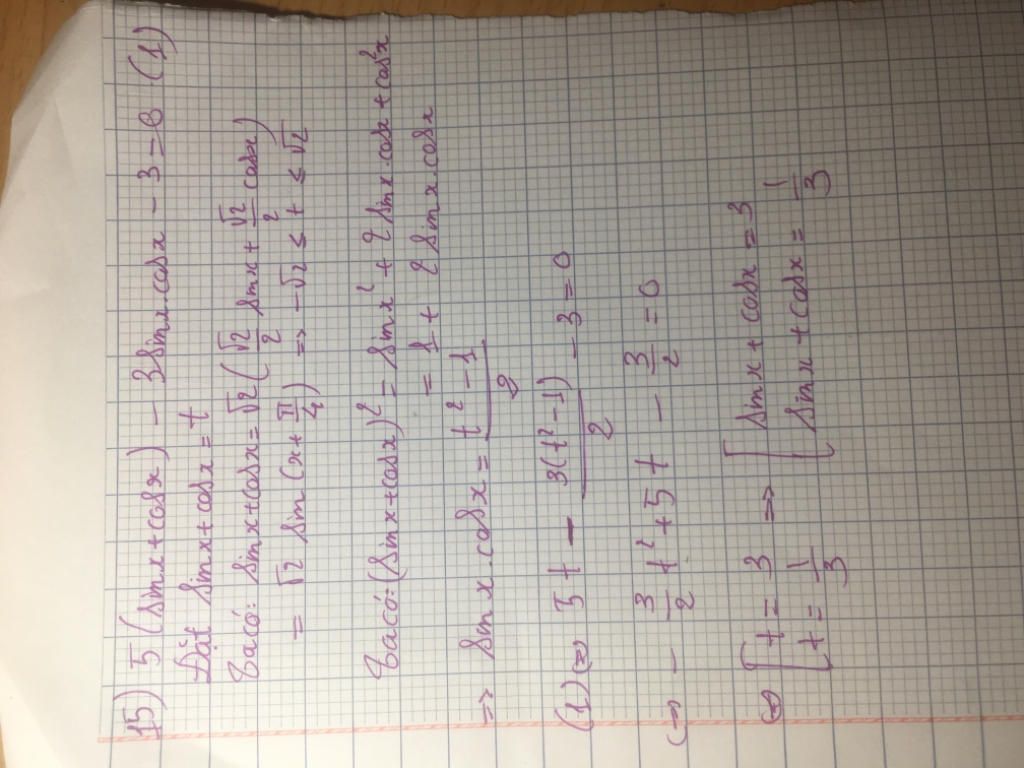 15) 5(sinx+cosx) - 3sinx.cosx - 3=0 (1)
Đặt sinx+cosx=t
Ta có: sinx+cosx=√2(√2/2 sinx+√2/2 cosx)
= √2 sin(x+π/4) => -√2 ≤ t ≤ √2
Ta có: (sinx+cosx)²=sinx²+2sinx.cosx+cos²x
= 1+ 2sinx.cosx
=> sinx.cosx= t²-1/2
(1)(=) 5t - 3(t²-1)/2 -3=0
(=) -3/2 t²+5t - 3/2=0
⇔ [t=3 => [sinx+cosx=3
[t=1/3 [sinx+cosx=1/3